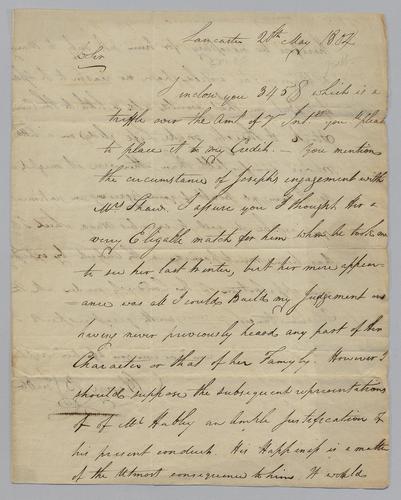 Lancaster 20th May 1804
D Sir
I inclose you 345$ which is a
triffle over the Amt of Int you 'll please
to place it to my Credit. — You mention
the circumstance of Joseph's engagement with
Mrs Shaw. I assure you I thought her a
very Eligable match for him when he took me
to see her last Winter, but her mere appear-
ance was all I could Build my Judgement on
having never previously heard any part of her
Character or that of her Family. However I
should suppose the subsequent representations
of Mr Hubley an Ample Justification of
his present conduct. His Happiness is a matter
of the Utmost consequence to him. It would